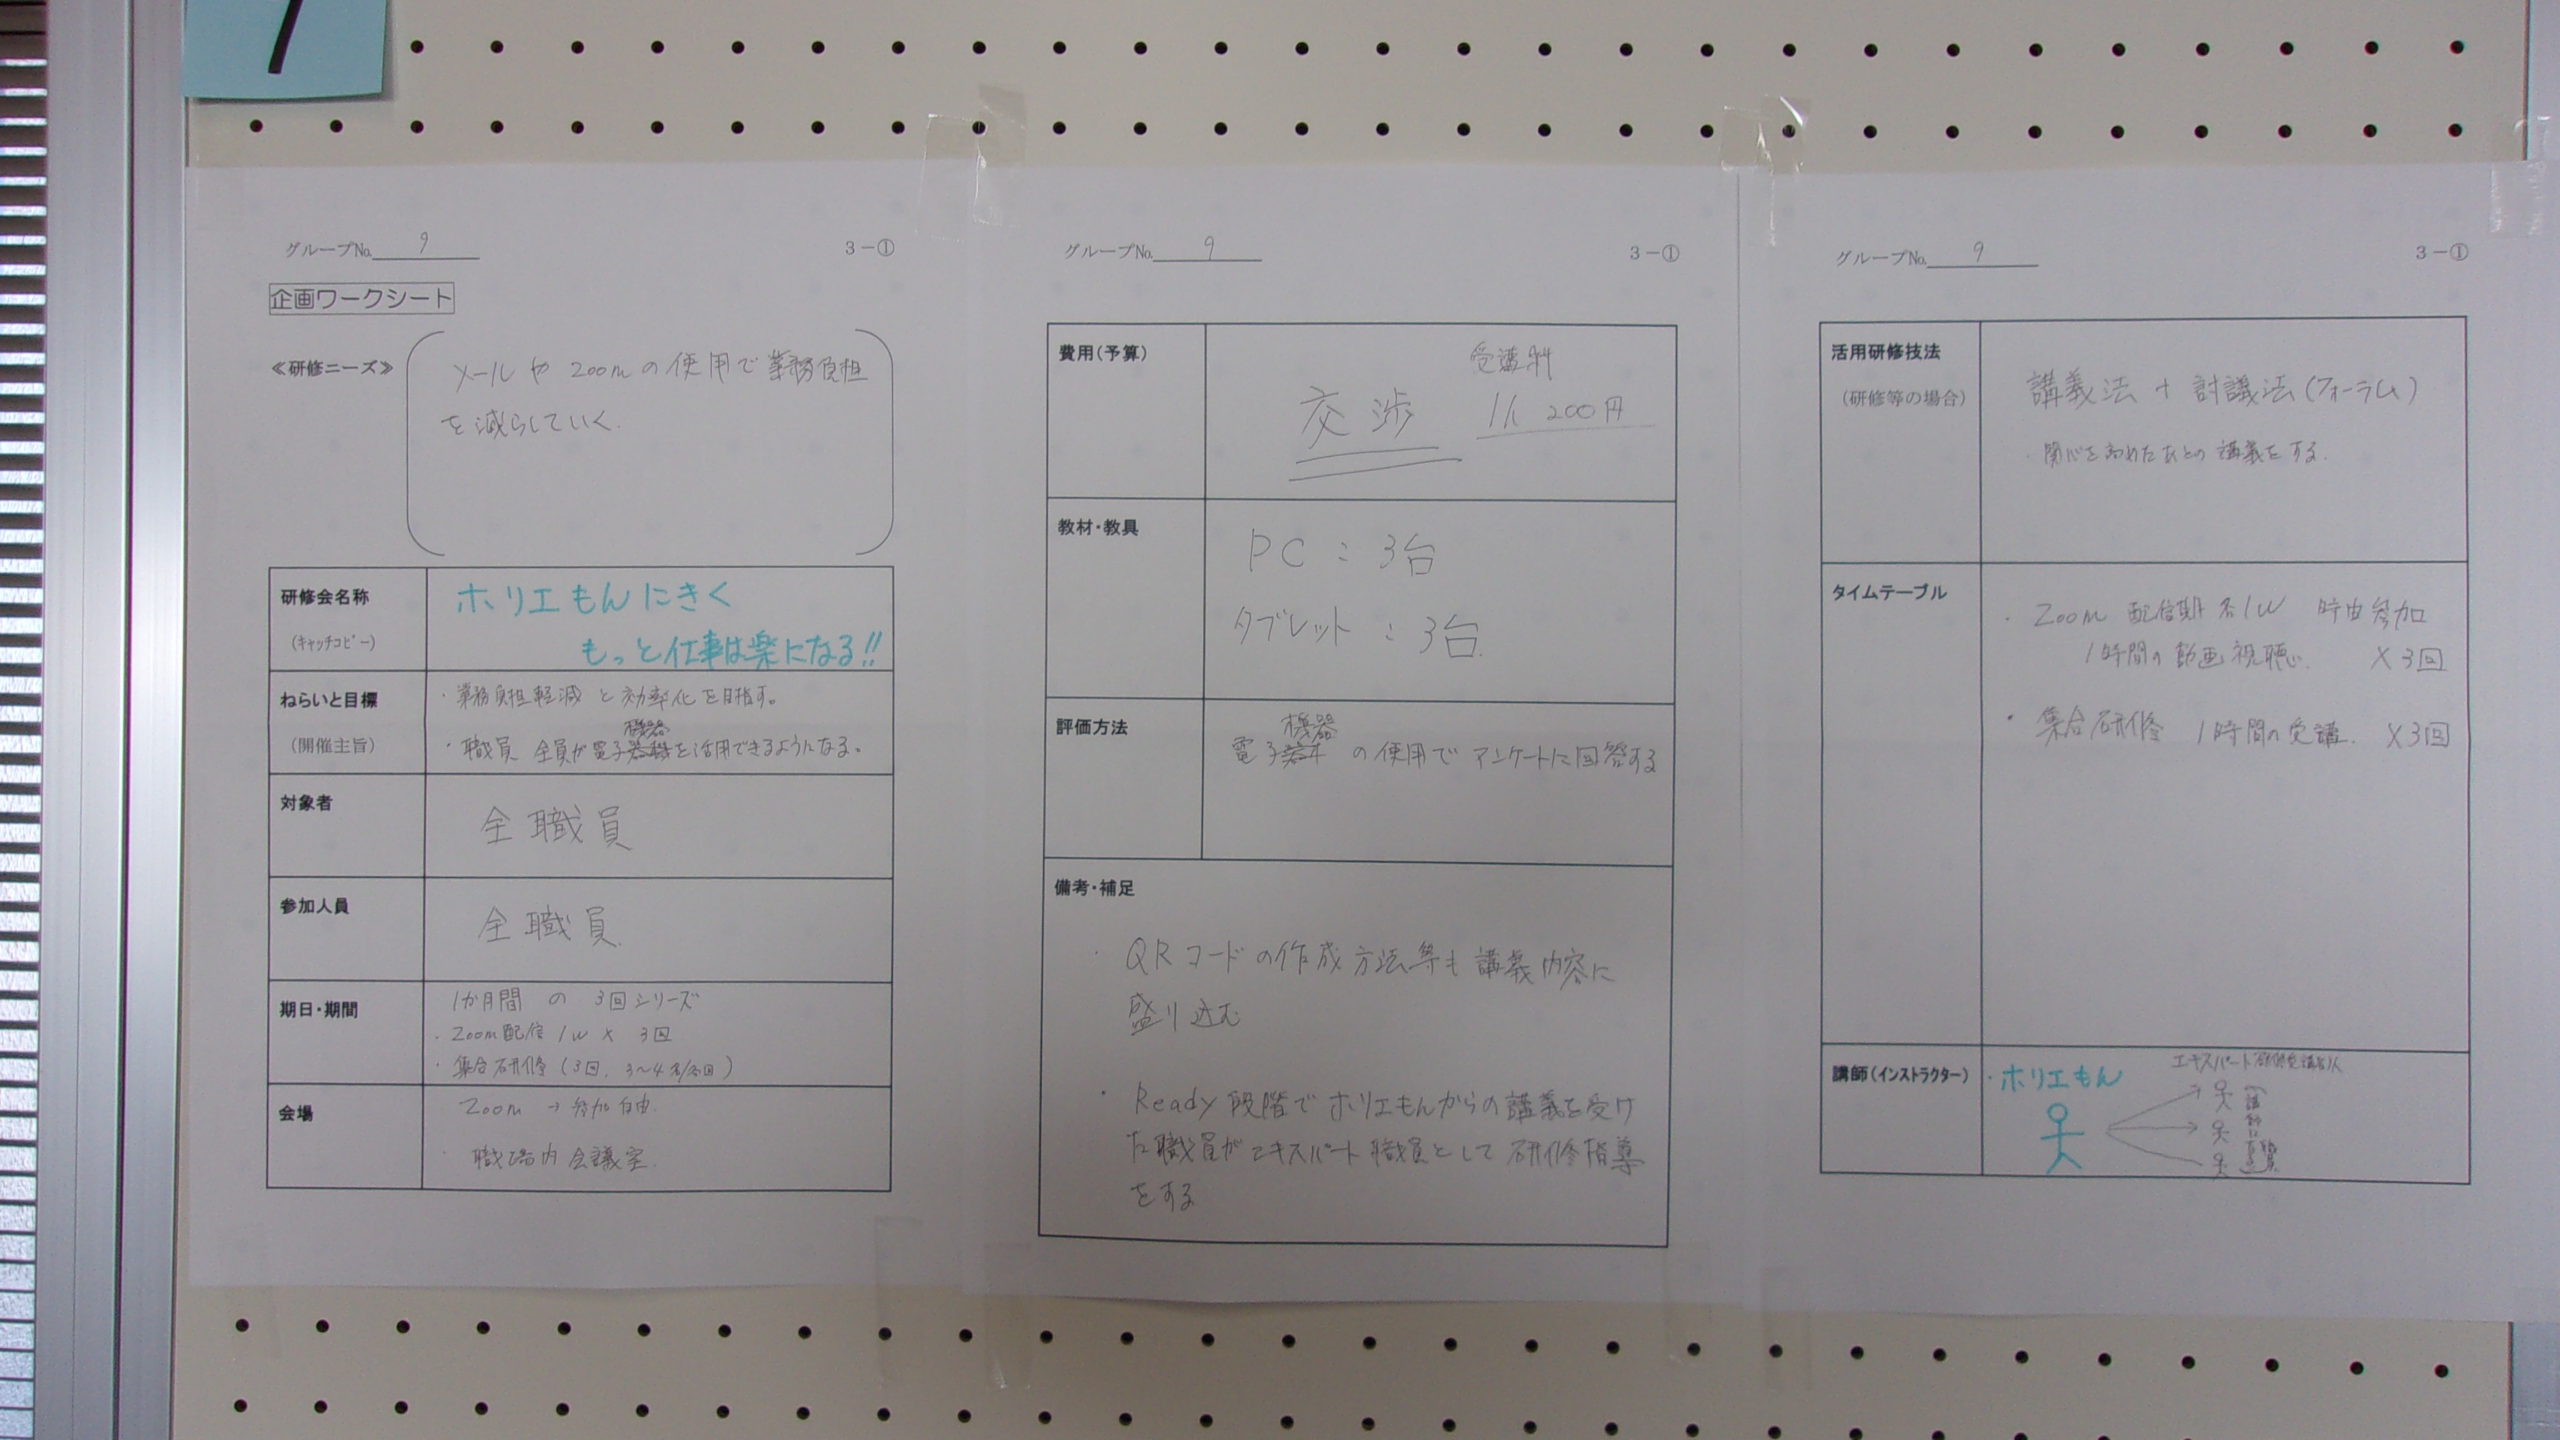 グループNo. 9
3－①
企画ワークシート
≪研修ニーズ≫
メールや zoomの使用で業務負担
を減らしていく.
研修会名称
(キャッチコピー)
ホリエもんにきく
もっと仕事は楽になる!!
ねらいと目標
(開催主旨)
・業務負担軽減 と 効率化を目指す。
機器
・職員 全員が電子を活用できるようになる。
対象者
全職員
参加人員
全職員
期日・期間
1か月間 の 3回シリーズ
・Zoom配信 1w × 3回
・集合研修 (3回, 3～4名/各回)
会場
Zoom → 参加自由.
・職場内 会議室.
グループNo. 9
3－①
費用(予算)
受講料
交渉 1人 200円
教材・教具
PC : 3台
タブレット : 3台.
評価方法
機器
電子 の使用でアンケートに回答する
備考・補足
・QRコードの作成方法等も講義内容に
盛り込む
・Ready段階でホリエもんからの講義を受け
た職員がエキスパート職員として研修指導
をする
グループNo. 9
3－①
活用研修技法
(研修等の場合)
講義法 + 討議法(フォーラム)
・関心を高めたあとの講義をする.
タイムテーブル
・Zoom 配信期 各1W 自由参加
1時間の動画視聴. ×3回
・集合研修 1時間の受講. ×3回
講師(インストラクター)
・ホリエもん
エキスパート研修受講者